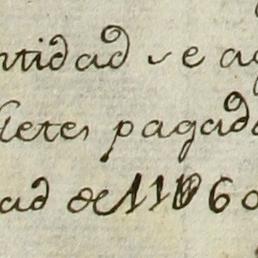 ntidad se a
lletes pagad
ad de 11060